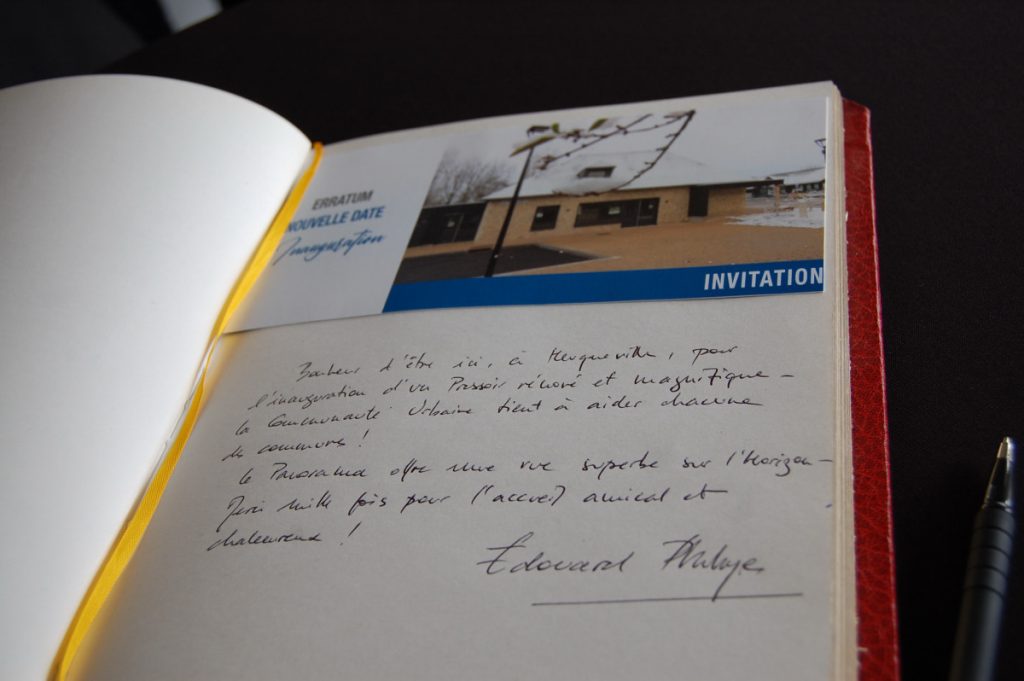 ERRATUM
NOUVELLE DATE
Inauguration
INVITATION
Bonheur d'être ici, à Heuqueville, pour
l'inauguration d'un Pressoir rénové et magnifique –
la Communauté Urbaine tient à aider chacune
des communes !
le Panorama offre une vue superbe sur l'Horizon –
Merci mille fois pour l'accueil amical et
chaleureux !
Edouard Philippe